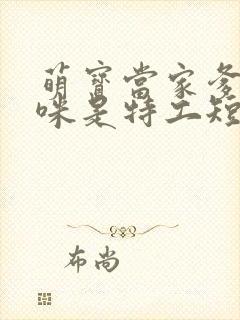 萌寶當家爹
咪是特工短
布尚